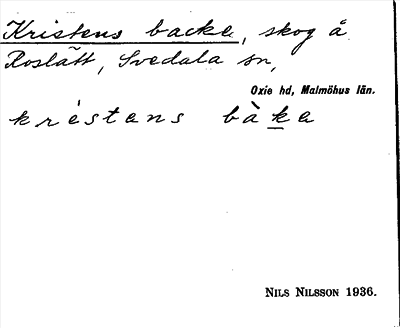 Kristens backe, skog å
Roslätt, Svedala sn,
Oxie hd, Malmöhus län.
krèstens bàke
Nils Nilsson 1936.